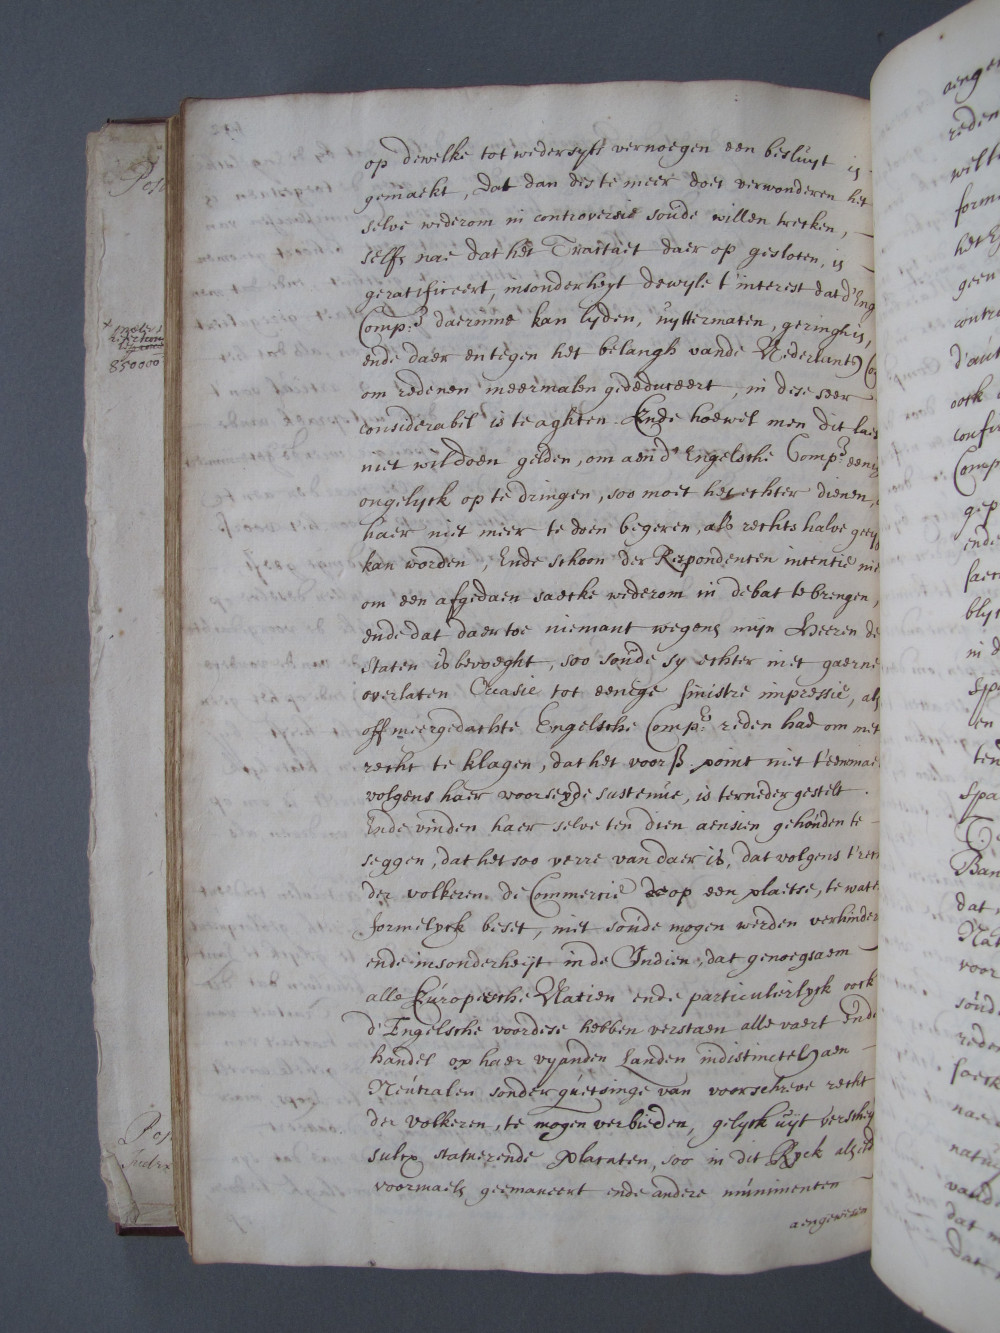 op dewelke tot wedersyts vernoegen een besluyt is
gemaeckt, dat dan des te meer doet verwonderen het
selve wederom in controversie soude willen trecken,
selfs nae dat het Tractaet daer op gesloten, is
geratificeert, insonderheyt dewyle t'interest dat d'Eng
Comp:e daerinne kan lyden, uyttermaten, geringh is,
ende daer entegen het belangh vande Nederlants
om redenen meermalen gededuceert, in dese seer
considerabel is te aghten. Ende hoewel men dit
niet wil doen gelden, om aen d'Engelsche Comp:e eenig
ongelyck op te dringen, soo moet het echter dienen,
haer niet meer te doen begeren, als rechts halve
kan worden, Ende schoon der Respondenten intentie
om een afgedaen saecke wederom in debat te brengen,
ende dat daer toe niemant wegens mijn Heeren de
Staten is bevoeght, soo soude sy echter niet gaerne
overlaten Occasie tot eenige sinistre impressie, als
off meergedachte Engelsche Comp:e reden had om met
recht te klagen, dat het voorß. point niet t'eenmael
volgens haer voorseyde sustenue, is terneder gestelt.
Ende vinden haer selve ten dien aensien gehouden te
seggen, dat het soo verre van daer is, dat volgens t'recht
der volkeren de Commercie op een plaetse, te water
formelyck beset, niet soude mogen werden verhindert
ende insonderheijt in de Indien, dat genoegsaem
alle Europesche Natien ende particulierlyck oock
d'Engelsche voor dese hebben verstaen alle vaert ende
handel op haer vyanden Landen indistinctel. aen
Neutralen sonder quetsinge van voorschreve recht
der volkeren, te mogen verbieden, gelyck uijt verschey
sulcx statuerende Placaten, soo in dit Ryck
voormaels geemaneert ende andere munimenten
aengewesen
850000